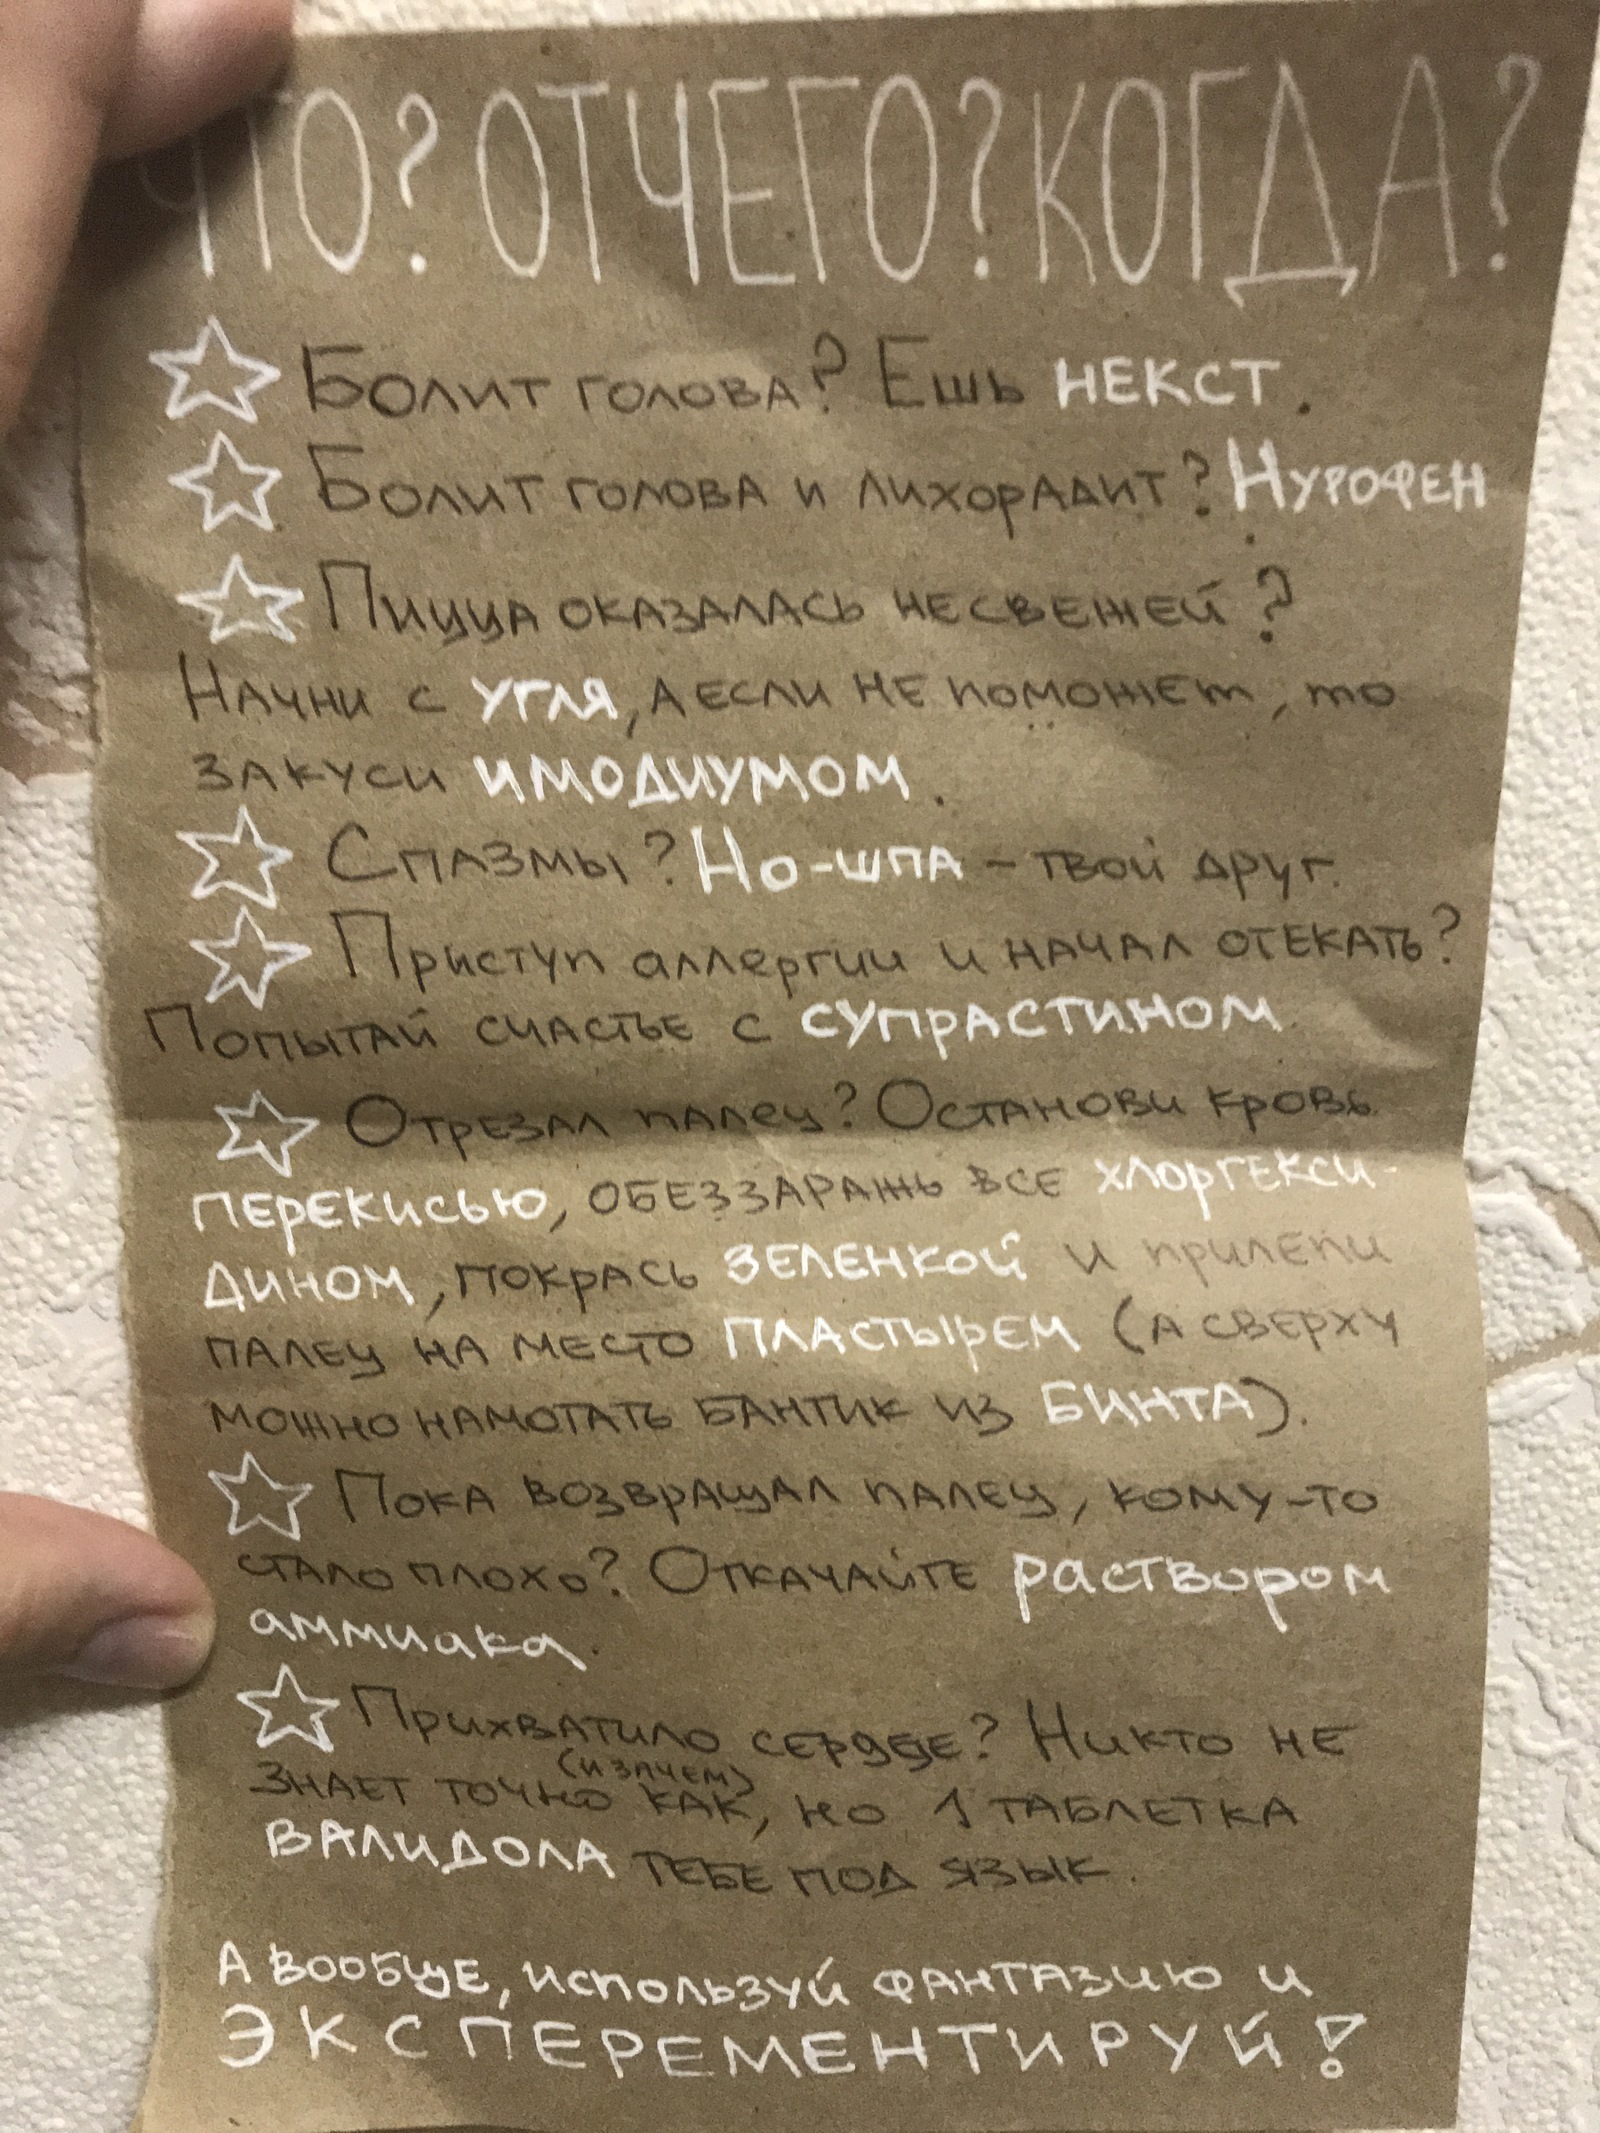 ЧТО? ОТЧЕГО? КОГДА?
Болит голова? Ешь НЕКСТ.
Болит голова и лихорадит? Нурофен
Пицца оказалась несвежей?
Начни с УГЛЯ, а если не поможет, то
закуси ИМОДИУМОМ.
Спазмы? Но-шпа - твой друг.
Приступ аллергии и начал отекать?
Попытай счастье с СУПРАСТИНОМ
Отрезал палец? Останови кровь
ПЕРЕКИСЬЮ, обеззаражь все ХЛОРГЕКСИ-
ДИНОМ, покрась ЗЕЛЕНКОЙ и прилепи
палец на место ПЛАСТЫРЕМ (а сверху
можно намотать бантик из БИНТА).
Пока возвращал палец, кому-то
стало плохо? Откачайте раствором
аммиака.
Прихватило сердце? Никто не
(и зачем)
знает точно как, но 1 таблетка
ВАЛИДОЛА тебе под язык.
А вообще, используй фантазию и
ЭКСПЕРЕМЕНТИРУЙ!